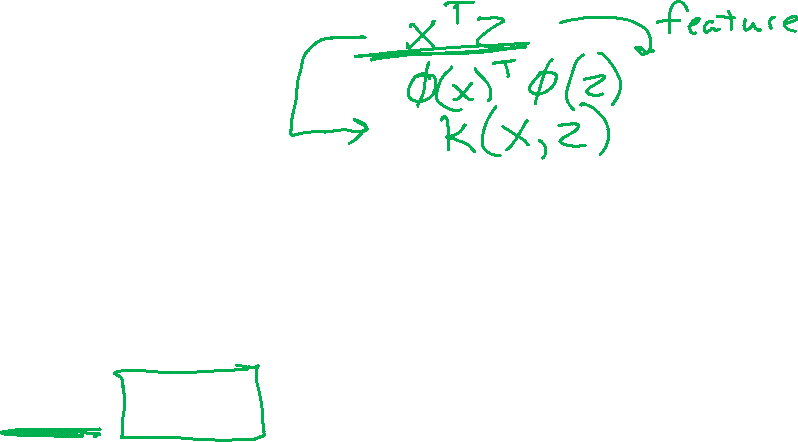 xᵀz feature
ϕ(x)ᵀ ϕ(z)
k(x,z)